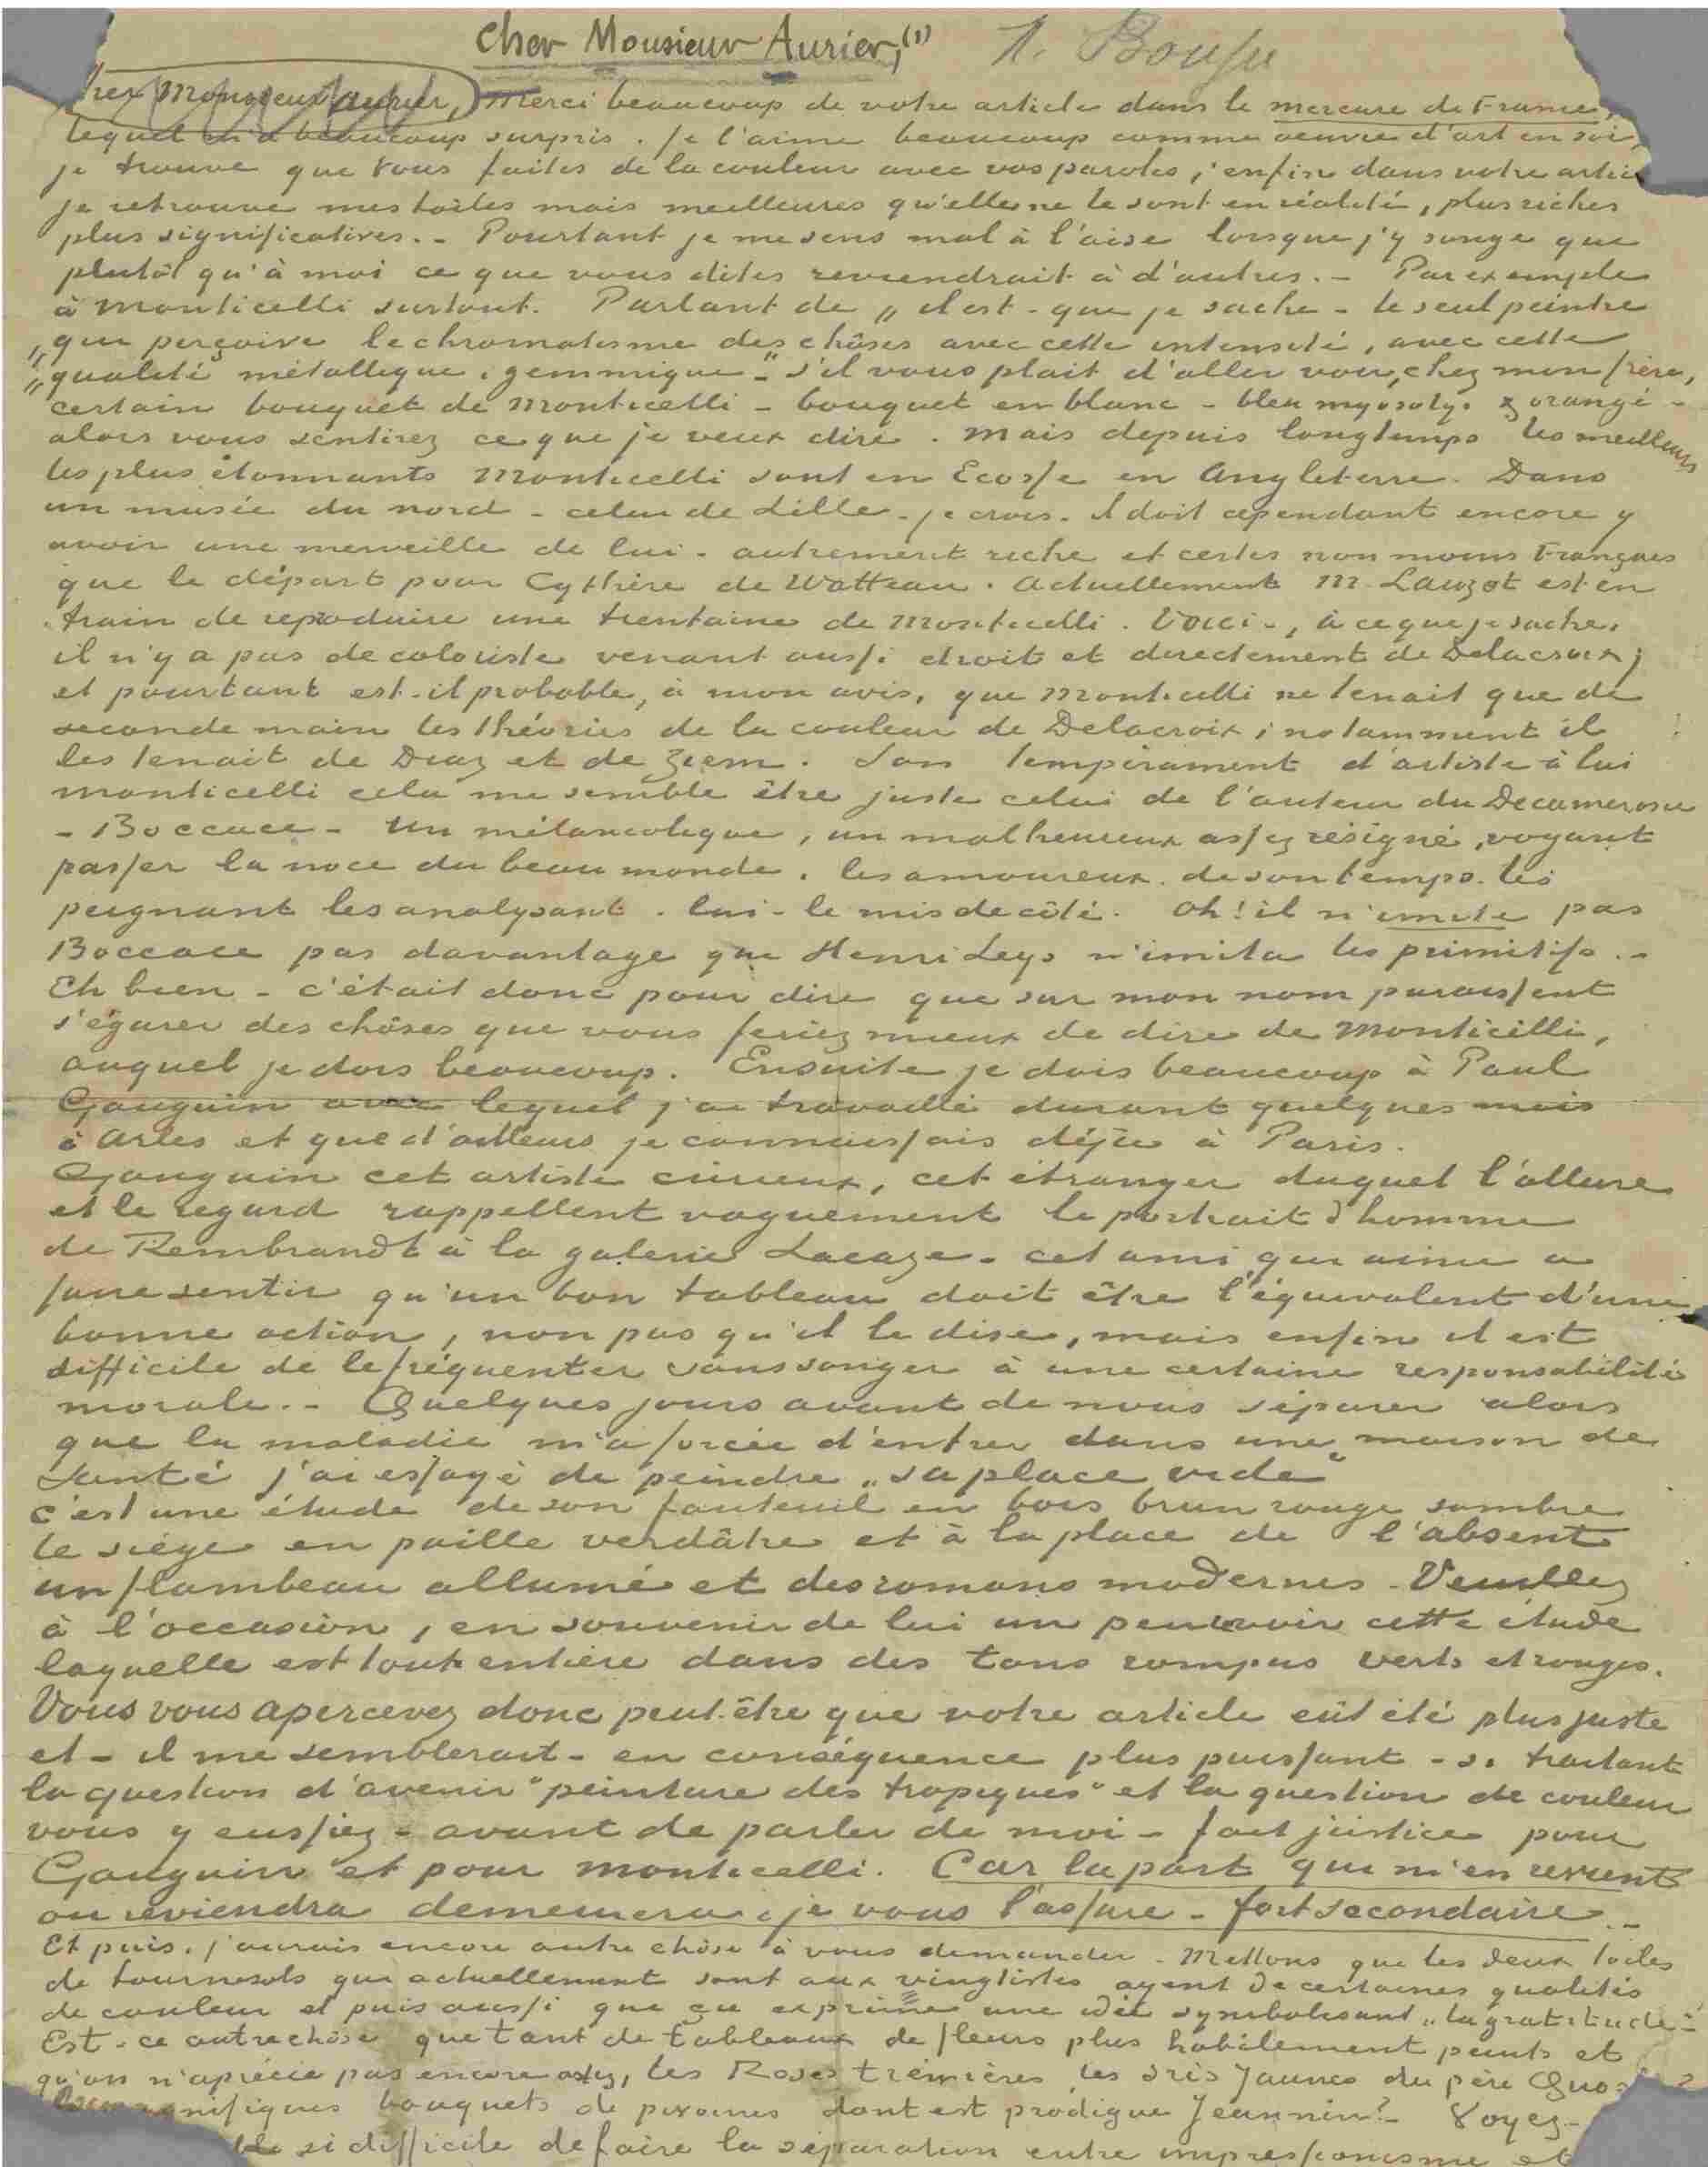 Cher Monsieur Aurier, (1)
Cher Monsieur Aurier, Merci beaucoup de votre article dans le mercure de France,
lequel m'a beaucoup surpris. Je l'aime beaucoup comme oeuvre d'art en soi,
je trouve que vous faites de la couleur avec vos paroles; enfin dans votre article
je retrouve mes toiles mais meilleures qu'elle ne le sont en réalité, plus riches
plus significatives.- Pourtant je me sens mal à l'aise lorsque j'y songe que
plutôt qu'à moi ce que vous dites reviendrait à d'autres.- Par exemple
à Monticelli surtout. Parlant de „il est - que je sache - le seul peintre
„qui perçoive le chromatisme des chôses avec cette intensité, avec cette
„qualité métallique, gemmique -" s'il vous plait d'aller voir, chez mon frère,
certain bouquet de Monticelli - bouquet en blanc - bleu myosotys & orangé -
alors vous sentirez ce que je veux dire. Mais depuis longtemps les meilleurs
les plus étonnants Monticelli sont en Ecosse en Angleterre. Dans
un musée du nord - celui de Lille - je crois. il doit cependant encore y
avoir une merveille de lui - autrement riche et certes non moins Français
que le départ pour Cythère de Watteau. Actuellement M. Lauzet est en
train de reproduire une trentaine de Monticelli. Voici -, à ce que je sache,
il n'y a pas de coloriste venant aussi droit et directement de Delacroix;
et pourtant est-il probable, à mon avis, que Monticelli ne tenait que de
seconde main les théories de la couleur de Delacroix; notamment il
les tenait de Diaz et de Ziem. Son tempérament d'artiste à lui
Monticelli cela me semble être juste celui de l'auteur du Decamerone
- Boccace - Un mélancolique, un malheureux assez résigné, voyant
passer la noce du beau monde, les amoureux de son temps, les
peignant les analysant, lui - le mis de côté. Oh! il n'imite pas
Boccace pas davantage que Henri Leys n'imita les primitifs.-
Eh bien - c'était donc pour dire que sur mon nom paraissent
s'égarer des chôses que vous feriez mieux de dire de Monticelli,
auquel je dois beaucoup. Ensuite je dois beaucoup à Paul
Gauguin avec lequel j'ai travaillé durant quelques mois
à Arles et que d'ailleurs je connaissais déjà à Paris.
Gauguin cet artiste curieux, cet étranger duquel l'allure
et le regard rappellent vaguement le portrait d'homme
de Rembrandt à la galerie Lacaze - cet ami qui aime à
faire sentir qu'un bon tableau doit être l'équivalent d'une
bonne action, non pas qu'il le dise, mais enfin il est
difficile de le fréquenter sans songer à une certaine responsabilité
morale.- Quelques jours avant de nous séparer alors
que la maladie m'a forcée d'entrer dans une maison de
Santé j'ai essayé de peindre „sa place vide"
c'est une étude de son fauteuil en bois brun rouge sombre
le siége en paille verdâtre et à la place de l'absent
un flambeau allumé et des romans modernes - Veuillez
à l'occasion, en souvenir de lui un peu revoir cette étude
laquelle est tout entière dans des tons rompus verts et rouges.
Vous vous apercevez donc peut-être que votre article eût été plus juste
et - il me semblerait - en conséquence plus puissant - si traitant
la question d'avenir "peinture des tropiques" et la question de couleur
vous y eussiez - avant de parler de moi - fait justice pour
Gauguin et pour Monticelli. Car la part qui m'en revient
ou reviendra demeurera, je vous l'assure - fort secondaire.-
Et puis, j'aurais encore autre chôse à vous demander - Mettons que les deux toiles
de tournesols qui actuellement sont aux vingtistes ayent de certaines qualités
de couleur et puis aussi que ça exprime une idée symbolisant „la gratitude"
Est-ce autre chôse que tant de tableaux de fleurs plus habilement peints et
qu'on n'apécie pas encore assez, les Roses trémières les iris Jaunes du père Quost?
magnifiques bouquets de pivoines dont est prodigue Jeannin? - Voyez-
si difficile de faire la séparation entre impressionisme et